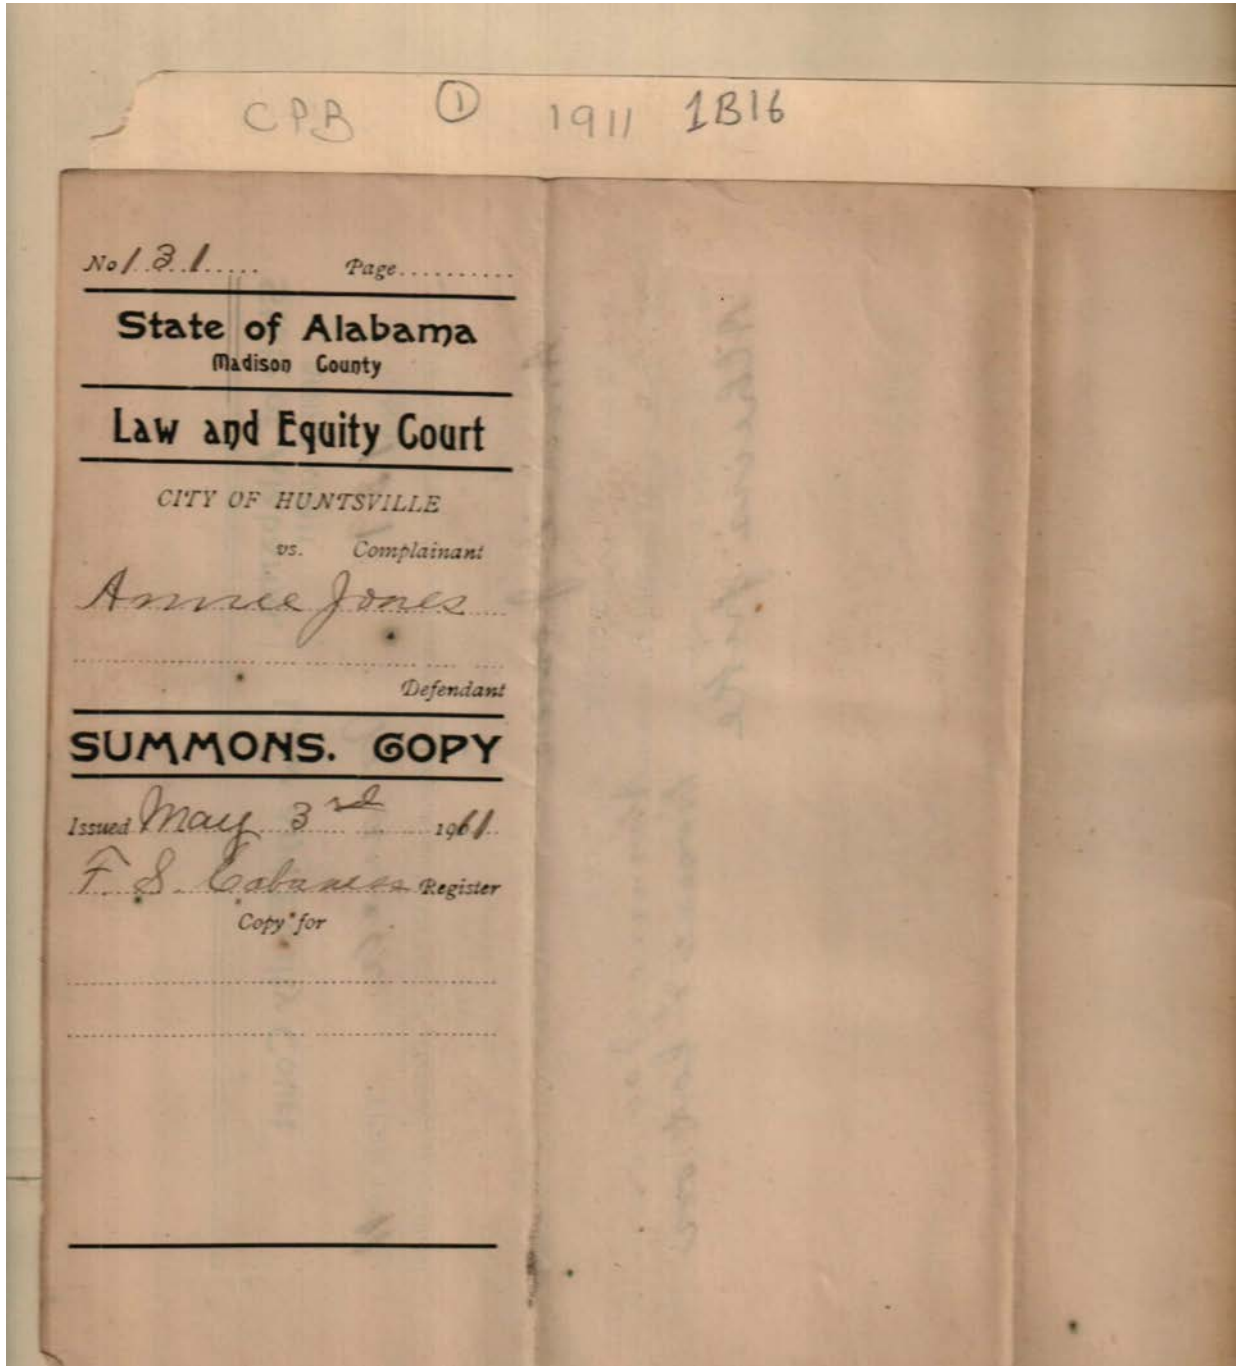 CPB ① 1911 1B16
No 131..... Page..........
State of Alabama
Madison County
Law and Equity Court
CITY OF HUNTSVILLE
vs. Complainant
Annice Jones
Defendant
SUMMONS. COPY
Issued May 3rd 1911.
F. S. Cabaness Register
Copy for